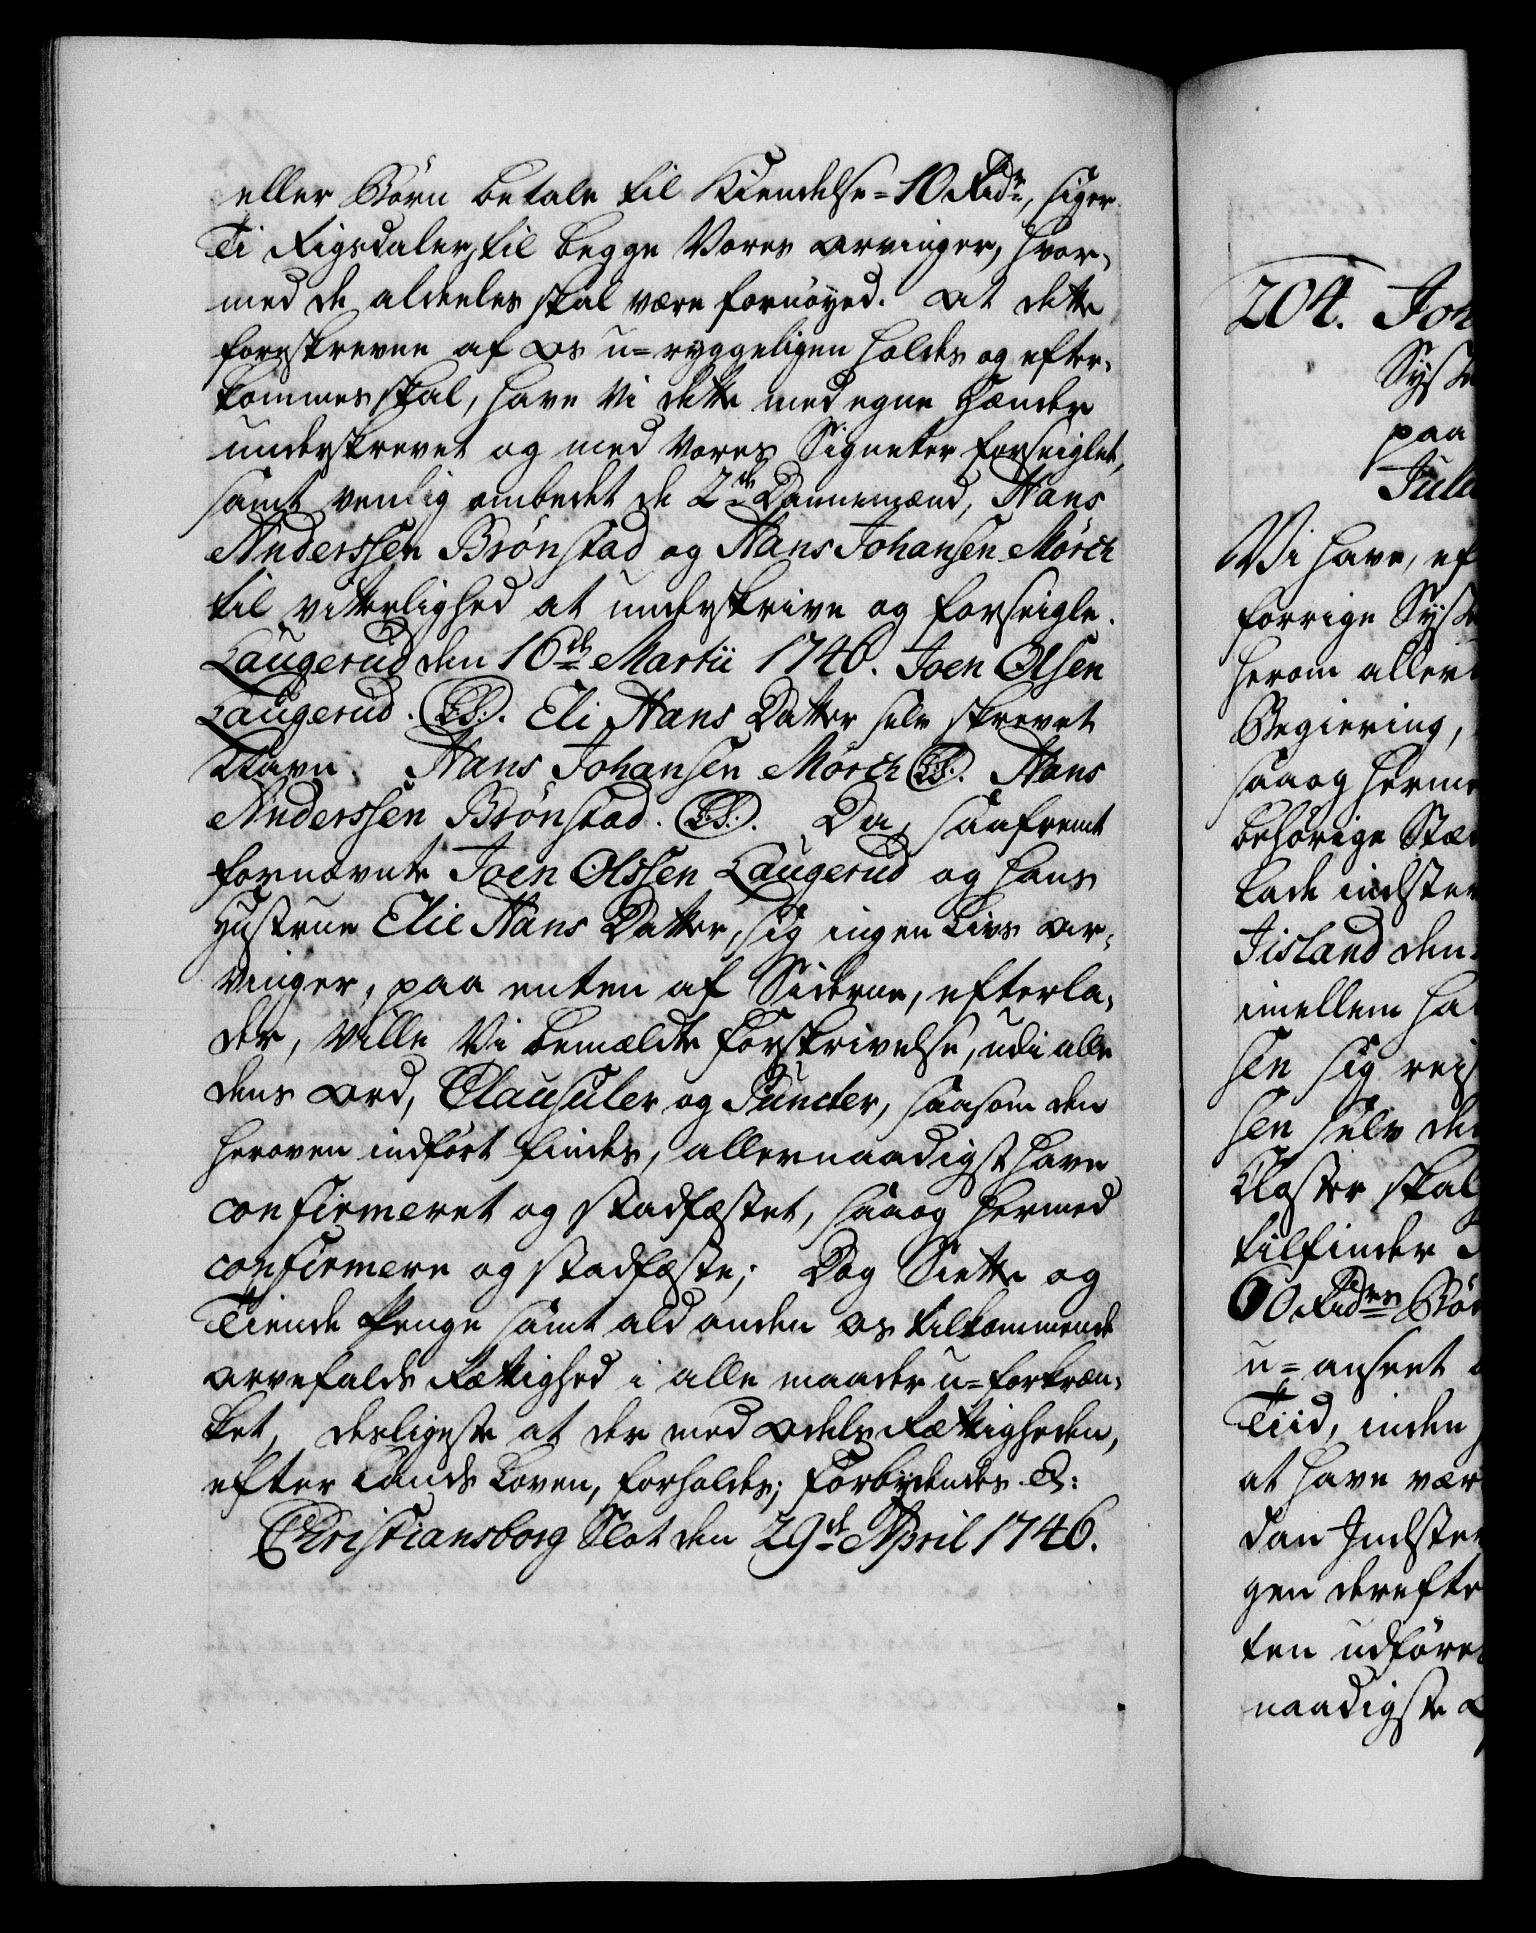 eller Börn betale til Kiendelse = 10 Rdr, siger
Ti Rigsdaler, til begge Vores Arvinger, hvor-
med de aldeeles skal være fornöyed. At dette
forskrevne af Os u-ryggeligen holdes og efter-
kommes skal, have Vi dette med egne Hænder
underskrevet og med Vores Signeter forseiglet,
samt venlig ombedet de 2de Dannemænd, Hans
Anderssen Brönstad og Hans Johansen Mörch
til vitterlighed at underskrive og forseigle.
Laugerud den 16de Martii 1746. Joen Olsen
Laugerud. (L.S.). Eli Hans Datter selv skrevet
Navn. Hans Johansen Mörch (L.S.). Hans
Anderssen Brönstad. (L.S.). Da, saafremt
fornævnte Joen Olssen Laugerud og hans
Hustrue Elie Hans Datter, sig ingen Livs Ar-
vinger, paa enten af Siderne, efterla-
der, Ville Vi bemældte Forskrivelse, udi alle
dens Ord, Clausuler og Puncter, saasom den
heroven indfört findes, allernaadigst have
confirmeret og stadfæstet, saa og hermed
confirmere og stadfæste; Dog Siette og
Tiende Penge samt ald anden Os tilkommende
Arvefalds Rættighed i alle maader u-forkræn-
ket, desligeste at der med Odels Rættigheden,
efter Lands Loven, forholdes; Forbydendes &:
Christiansborg Slot den 29de April 1746.
204. Joh
Syss
paa
Jula
Vi have, ef
forrige Syss
herom aller
Regiering,
saa og herme
behörige Stæ
lade indste
Iisland den
imellem ha
sen sig reis
sen selv de
Kloster skal
tilfinder
60 Rdrs Bö
u-anseet
Tiid, inden
at have vær
dan Indste
gen derefte
ten udföre
naadigste